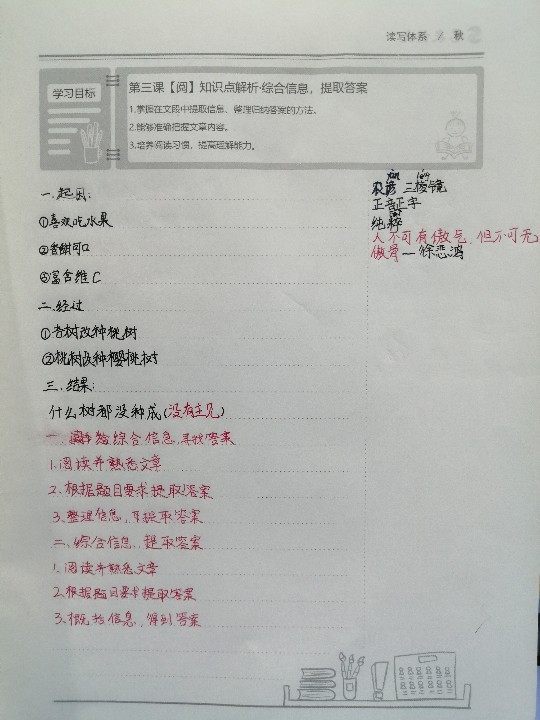 读写体系 秋
学习目标
第三课【阅】知识点解析·综合信息，提取答案
1.掌握在文段中提取信息、整理归纳答案的方法。
2.能够准确把握文章内容。
3.培养阅读习惯，提高理解能力。
一.起因:
①喜欢吃水果
②香甜可口
③富含维C
二.经过
①杏树改种桃树
②桃树改种樱桃树
三.结果:
什么树都没种成(没有主见)
综合信息,寻找答案
1.阅读并熟悉文章
2.根据题目要求提取答案
3.整理信息,提取答案
二、综合信息,提取答案
1.阅读并熟悉文章
2.根据题目要求提取答案
3.概括信息,得到答案
三棱镜
正音正字
纯粹
人不可有傲气,但不可无
傲骨—徐悲鸿